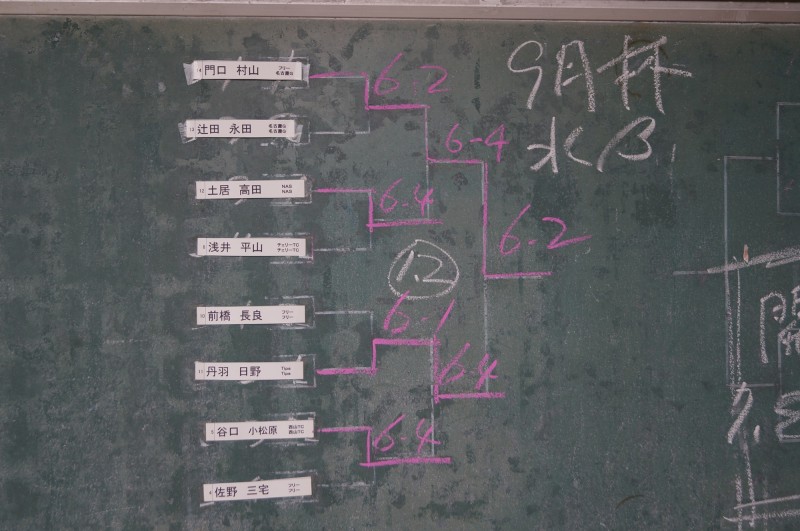 門口 村山 フリー 名古屋LTC
6-2
9月杯
辻田 永田
6-4
水B1
12 土居 高田 NAS NAS
6-4
浅井 平山 チェリーTC チェリーTC
6-2
12
10 前橋 長良 フリー フリー
6-1
11 丹羽 日野 Tips Tips
6-4
谷口 小松原 西山TC 西山TC
6-4
佐野 三宅 フリー フリー